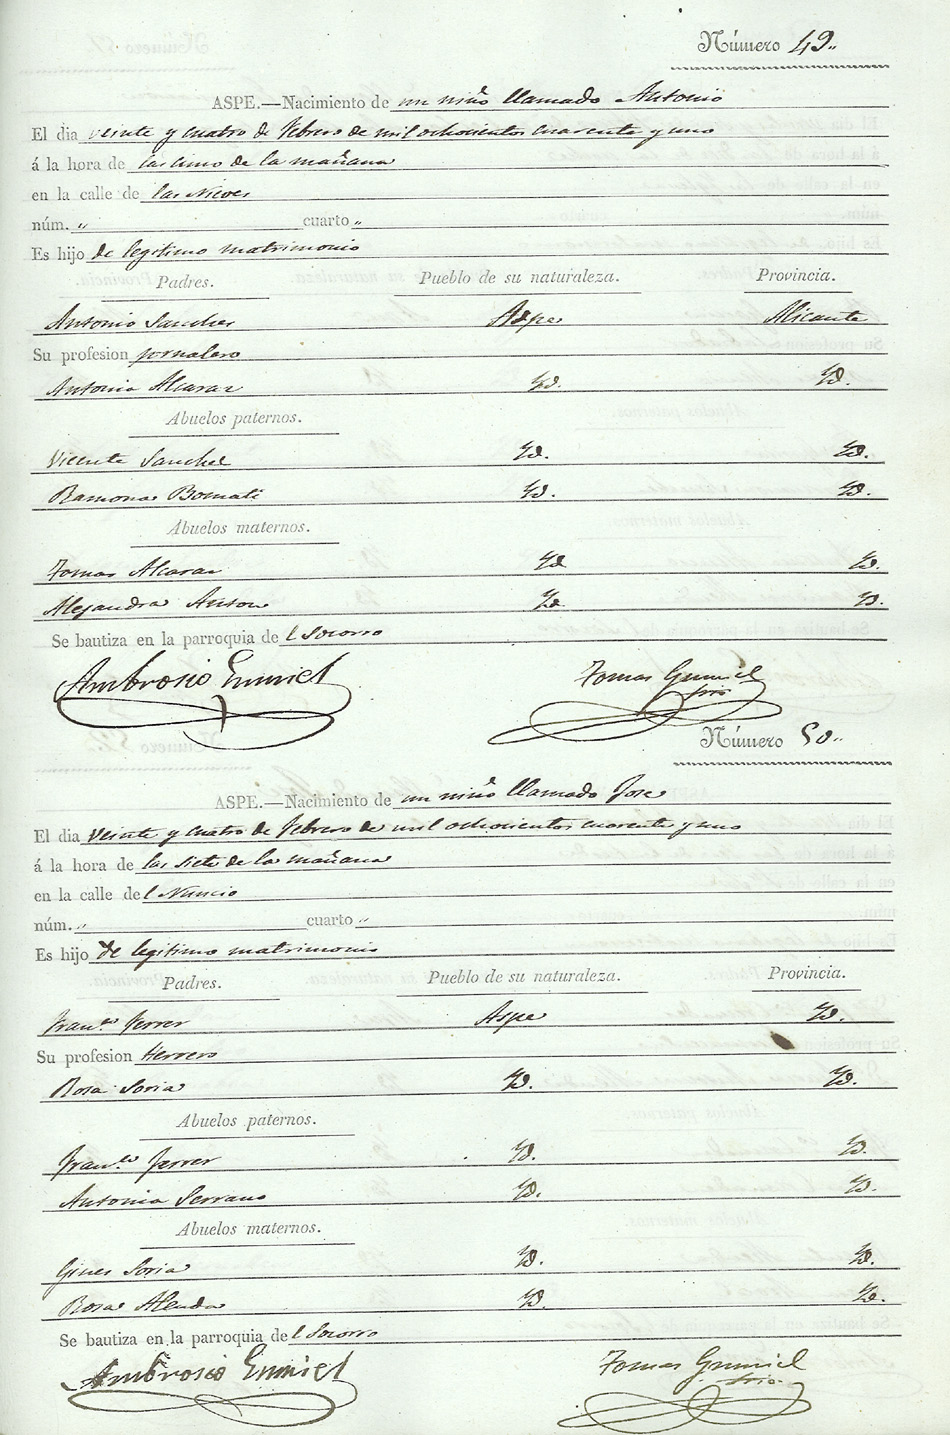 Número 49..
ASPE.—Nacimiento de un niño llamado Antonio
El dia veinte y cuatro de Febrero de mil ochocientos cuarenta y uno
á la hora de las cinco de la mañana
en la calle de las Nieves
núm. „ cuarto „
Es hijo de legitimo matrimonio
Padres. Pueblo de su naturaleza. Provincia.
Antonio Sanches Aspe Alicante
Su profesion jornalero
Antonia Alcaraz Yd. Yd.
Abuelos paternos.
Vicente Sanchez Yd. Yd.
Ramona Bomati Yd. Yd.
Abuelos maternos.
Tomas Alcaraz Yd Yd.
Alejandra Anton Yd. Yd.
Se bautiza en la parroquia del Socorro
Ambrosio Tomas
srio
Número 50..
ASPE.—Nacimiento de un niño llamado Jose
El dia veinte y cuatro de Febrero de mil ochocientos cuarenta y uno
á la hora de las siete de la mañana
en la calle del Nuncio
núm. „ cuarto „
Es hijo de legitimo matrimonio
Padres. Pueblo de su naturaleza. Provincia.
Franco. Ferrer Aspe Yd.
Su profesion Herrero
Rosa Soria Yd. Yd.
Abuelos paternos.
Franco. Ferrer Yd. Yd.
Antonia Serrano Yd. Yd.
Abuelos maternos.
Gines Soria Yd. Yd.
Rosa Yd. Yd.
Se bautiza en la parroquia del Socorro
Ambrosio Tomas
srio.